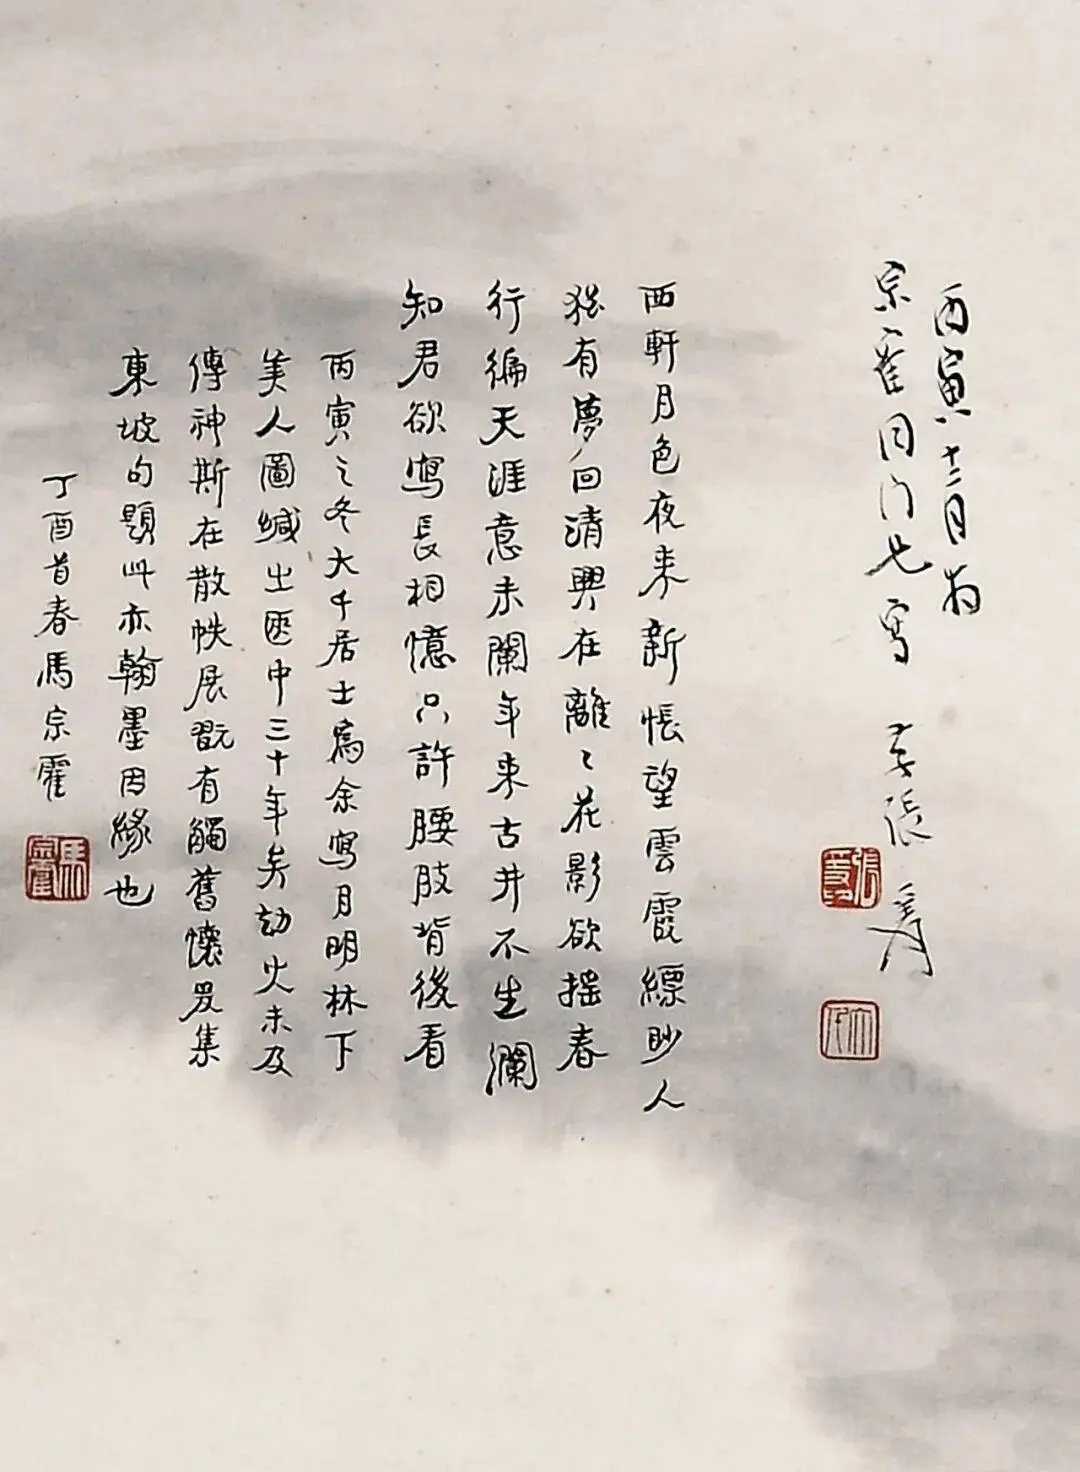 丙寅十二月為
宗霍同門兄寫 弟張爰
張爰
西軒月色夜来新悵望雲霞縹眇人
猶有夢回清興在離〻花影欲搖春
行徧天涯意未闌年来古井不生瀾
知君欲寫長相憶只許腰肢背後看
丙寅之冬大千居士為余寫月明林下
美人圖緘之匧中三十年矣劫火未及
傳神斯在散帙展翫有觸舊懷爰集
東坡句題此亦翰墨因緣也
丁酉首春馬宗霍
馬宗霍